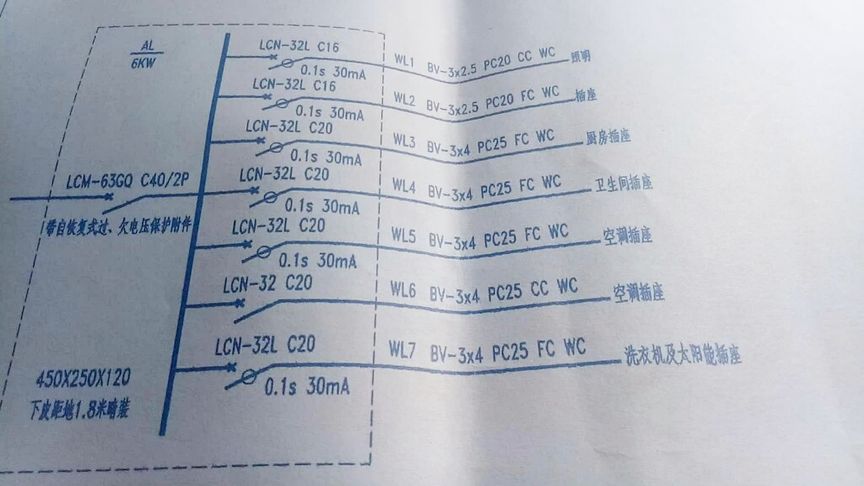 AL
6KW
LCN-32L C16
0.1s 30mA
WL1 BV-3x2.5 PC20 CC WC 照明
LCN-32L C16
0.1s 30mA
WL2 BV-3x2.5 PC20 FC WC 插座
LCN-32L C20
0.1s 30mA
WL3 BV-3x4 PC25 FC WC 厨房插座
LCM-63GQ C40/2P
带自恢复式过、欠电压保护附件
LCN-32L C20
0.1s 30mA
WL4 BV-3x4 PC25 FC WC 卫生间插座
LCN-32L C20
0.1s 30mA
WL5 BV-3x4 PC25 FC WC 空调插座
LCN-32 C20
WL6 BV-3x4 PC25 CC WC 空调插座
LCN-32L C20
0.1s 30mA
WL7 BV-3x4 PC25 FC WC 洗衣机及太阳能插座
450X250X120
下皮距地1.8米暗装